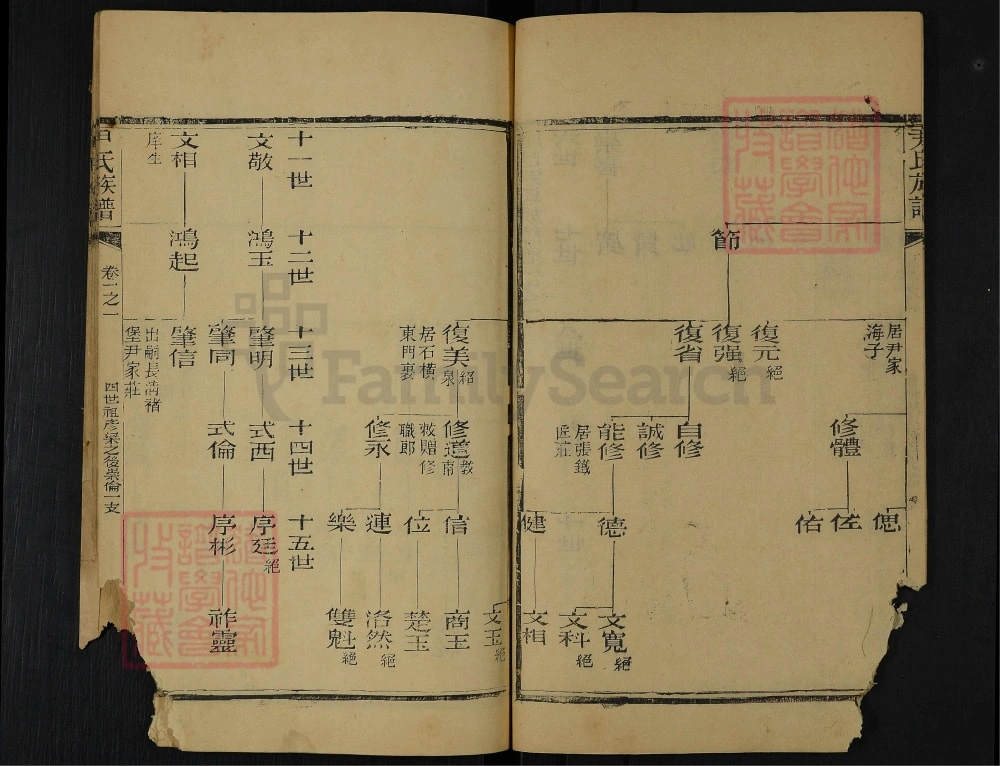 尹氏族譜
居尹家海子
節
復元 絕
復强 絕
復省
修體
自修
誠修
能修
居張鐵匠莊
偲
佐
佑
德
健
文寬 絕
文科 絕
文相
文玉 絕
復美
居石橫東門裏
修道
修永
信
位
連
樂
商玉
楚玉
洛然 絕
雙魁 絕
十一世
十二世
十三世
十四世
十五世
文敬
鴻玉
肇明
式西
序廷 絕
肇同
式倫
序彬
祚靈
文相
庠生
鴻起
肇信
出嗣長清褚堡尹家莊
氏族譜
卷一之一
四世祖彥梁之後崇倫一支
FamilySearch